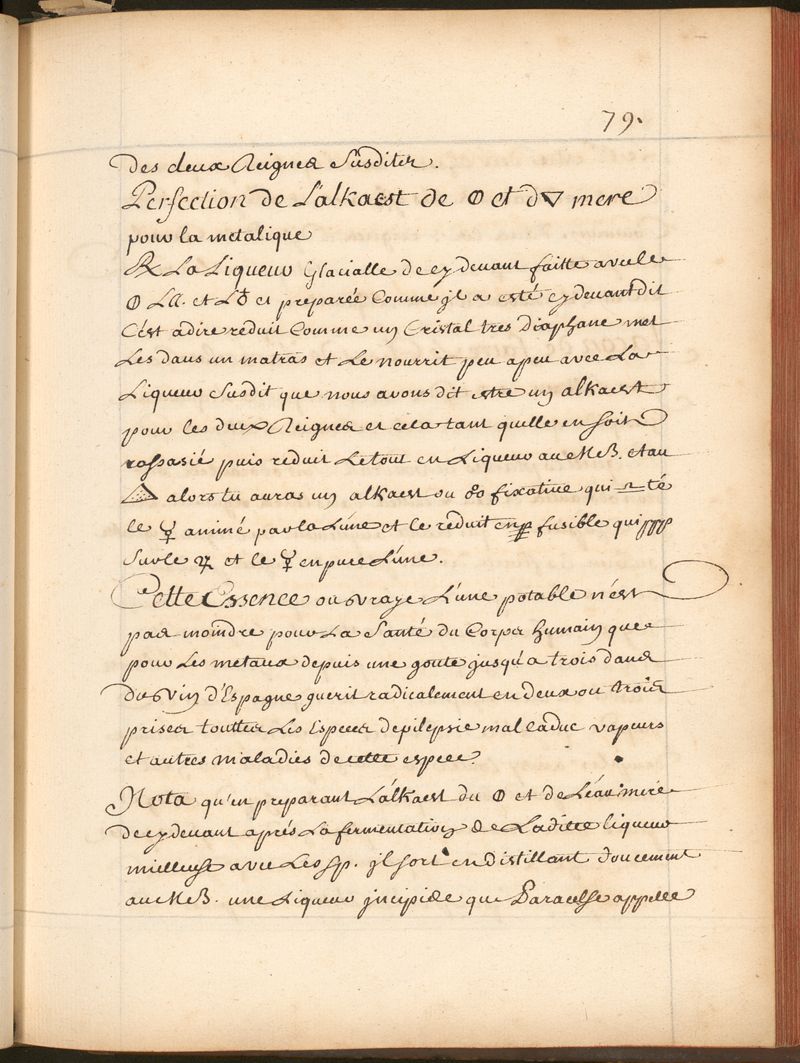 79.
Des deux Reignes Susdites.
Perfection de L'alkaest de 🜕 et d🜄 mere
pour la metalique
℞ La Liqueur Glacialle de cy devant faitte avec le
🜕 LL. et L♁ et preparée Comme jl a esté cy devant dit
C'est a dire reduit Comme un Cristal tres Diaphane met
Les dans un matras et Le nourrit peu a peu avec La
Liqueur Susdit que nous avons dit estre un alkaest
pour les deux Reignes et cela tant quelle en soit
rassasié puis reduit Le tout en Liqueur au MB. et au
alors tu auras un alkaest ou fixative qui té
le ☿ animé par la Lune et le reduit en fusible qui ppp
Sur le ♃ et le ☿ en pure Lune.
Cette Essence ou vraye Lune potable n'est
pas moindre pour La Santé du Corps humain que
pour Les metaux depuis une goute jusqu'a trois dans
Du vin d'Espagne guerit radicalement en deux ou trois
prises touttes Les Especes depilepsie mal caduc vapeurs
et autres maladies de cette espece.
Nota qu'en preparant L'alkaest du 🜕 et de L'eau mere
de cy devant aprés La fermentation de Laditte liqueur
mielleuse avec Les sp. jl sort en distillant doucement
au MB. une Liqueur jncipide que Paracelse appelle